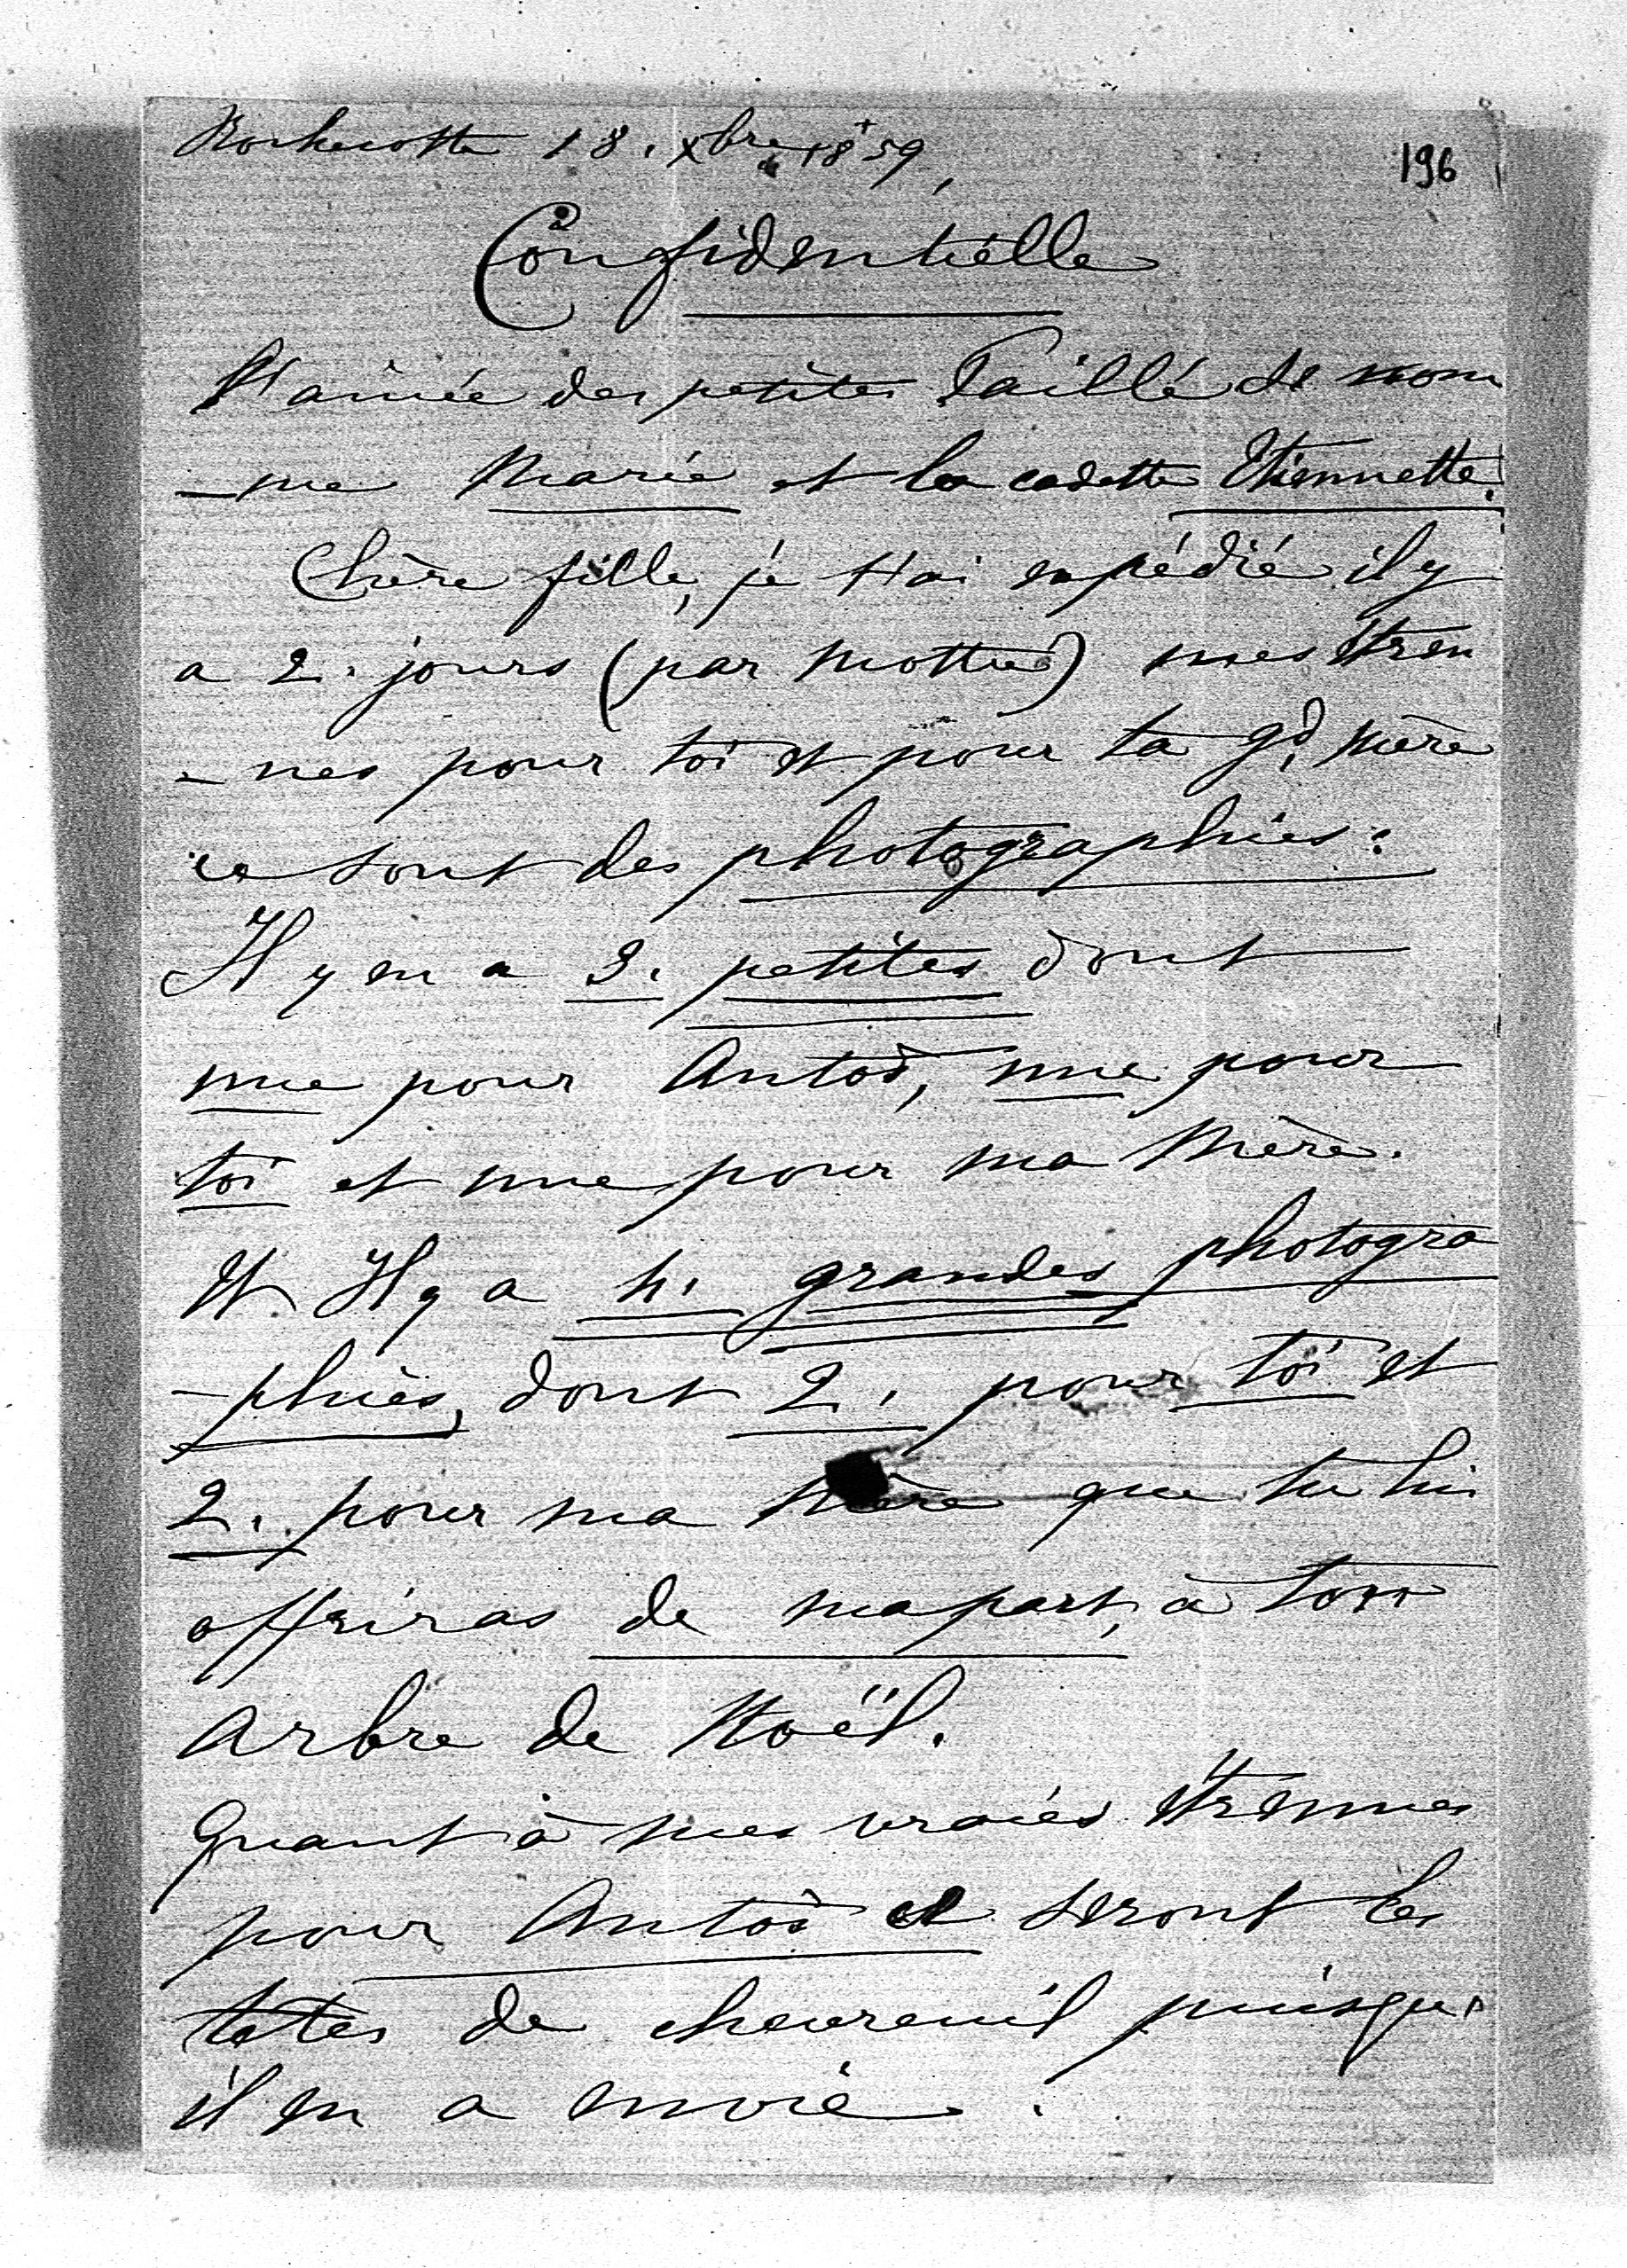 Rochecotte 18. Xbre 1859,
196
Confidentielle
L'ainée des petites Taillé se nom
-me Marie et la cadette Etiennette.
Chère fille, je t'ai expédié il y
a 2. jours (par Mottu) mes étren
-nes pour toi et pour ta gd. Mère
ce sont des photographies:
Il y en a 3. petites dont
une pour Antoi, une pour
toi et une pour ma Mère.
Et Il y a 4. grandes photogra
-phies, dont 2. pour toi et
2. pour ma Mère que tu lui
offriras de ma part, à ton
Arbre de Noël.
Quant à mes vraies étrennes
pour Antoi ce seront les
têtes de chevreuil puisqu'
il en a envie.